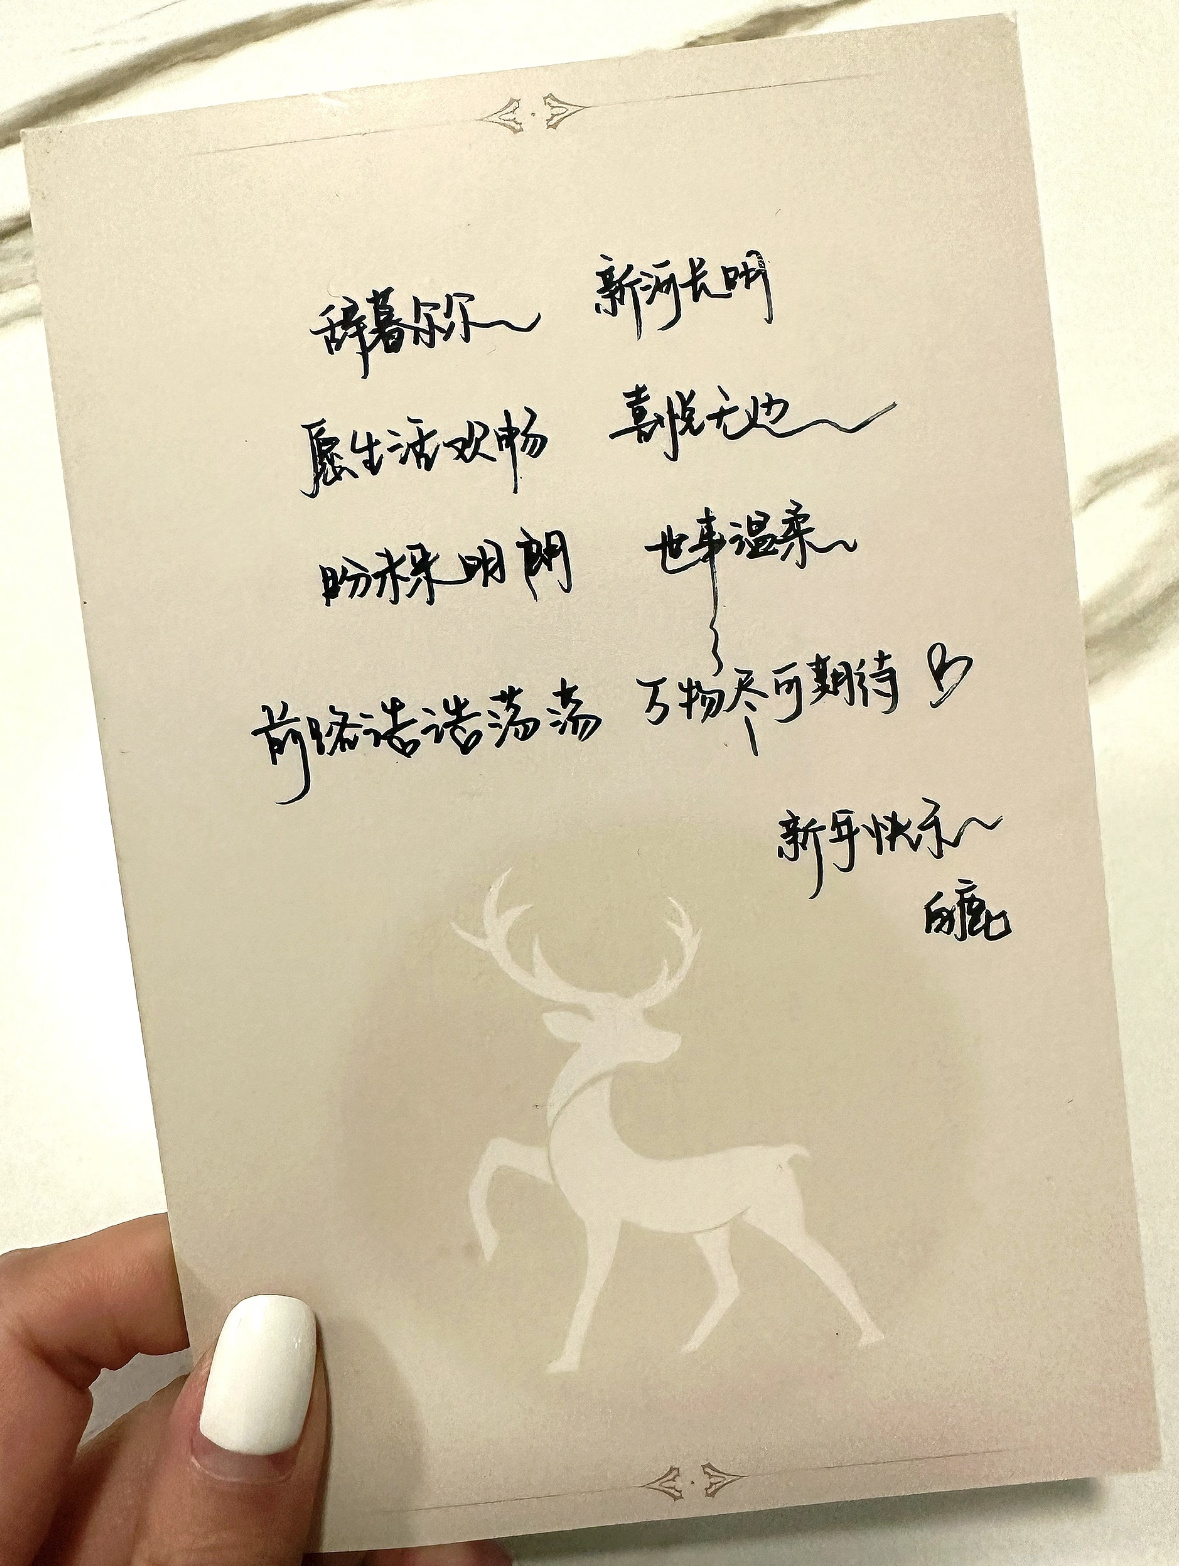 辞暮尔尔～ 新河长明
愿生活欢畅 喜悦无边～
盼未来明朗 世事温柔～
前路浩浩荡荡 万物尽可期待
新年快乐～
白鹿